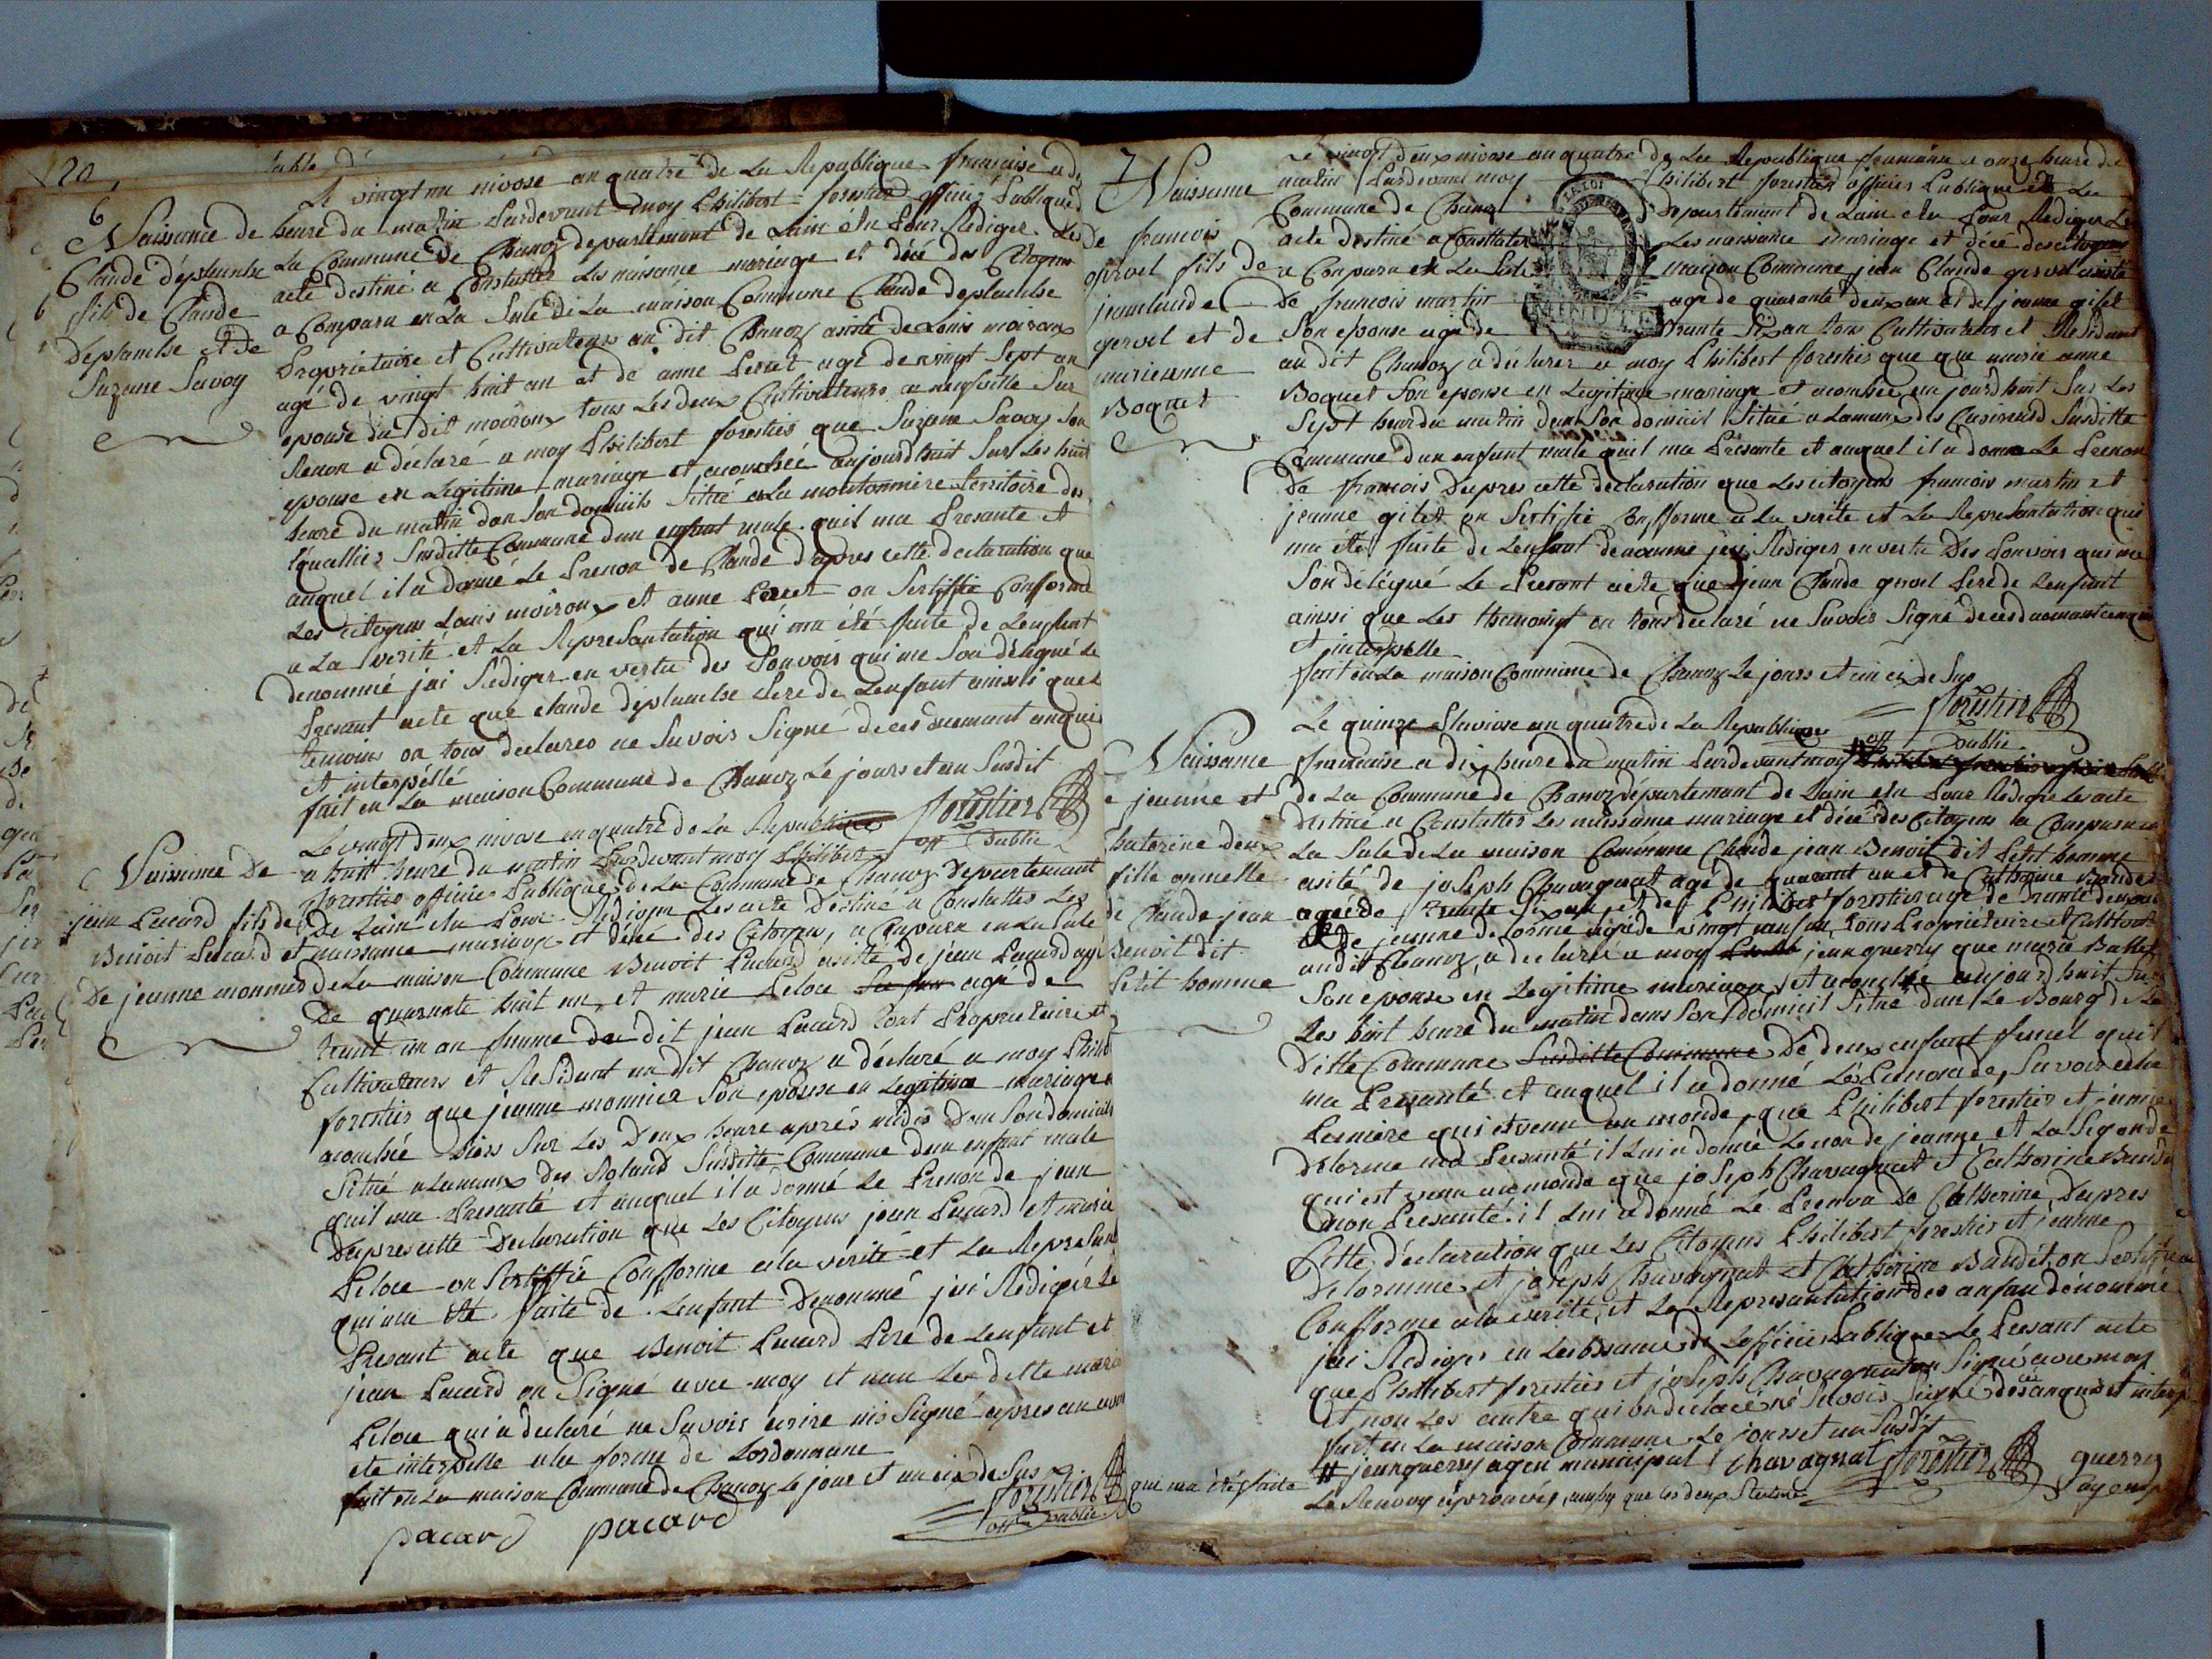 120
6
Naissance de
Claude déplanche
fils de Claude
Deplanche et de
Suzane Savoy
Le vingt un nivose an quatre de La Republique francaise a
heure du matin Pardevant moy Philibert forestier officier Publique
La Commune de Chanoz departement de Lain élu Pour Rediger Les
acte destiné a Constatter Les naisance mariage et décé des Citoyens
a Comparu en La Sale de La maison Commune Claude deplanche
Propriétaire et Cultivateurs au dit Chanoz asisté de Louis moiroux
agé de vingt huit an et de anne Perret agé de vingt Sept an
epouse du dit moiroux tous Les deux Cultivateurs a neufville Sur
Renon a déclaré a moy Philibert forestier que Suzane Savoy Son
epouse en Legitime mariage et acouchée aujourdhuit Sur Les huit
heure du matin dan Son domicils Situé a La moutonniere territoire des
Susditte Commune dun enfant male quil ma Presante et
auquel il a donné Le Prenon de Claude dapres cette declaration que
Les citoyens Louis moiroux et anne Perret on Sertiffie Conforme
a La verité et La Représantation qui ma été faite de Lenfant
denommé jai Rediger en vertu des Pouvois qui me Son délégué Le
Presant acte que claude déplanche Pere de Lenfant ainsi que Les
temoins on tous declares ne Savois Signé de ces duement anquis
et interpéllé
fait en La maison Commune de Chanoz Le jours et an Susdit
forestier
off public
Naissance De
jean Pacard fils de
Benoit Pacard et
De jeanne monnier
Le vingt deux nivose an quatre de La Republique
a huit heure du matin Pardevant moy Philibert
forestier officier Publique de La Commune de Chanoz departement
De Lain élu Pour Rediger Les acte Destiné a Constatter Les
naissance mariage et décé des Citoyens, a Comparu en La Sale
de La maison Commune Benoit Pacard asisté de jean Pacard agé
De quarante huit an, et marie Peloce agé de
trente un an femme du dit jean Pacard tout Proprietaire et
Cultivateurs et Residant au dit Chanoz a déclaré a moy Philibert
forestier que jeanne monnier Son epouse en Legitime mariage
acouchée hiers Sur Les Deux heure aprés midis Dans Son domicils
Situé a Lamaux des Roland Susditte Commune dun enfant male
quil ma Presanté et auquel il a donné Le Prenon de jean
Dapres cette Declaration que Les Citoyens jean Pacard et marie
Peloce on Sertiffié Confforme a la verité et La Represantation
qui ma été faite de Lenfant Denommé jai Redigér Le
Presant acte que Benoit Pacard Pere de Lenfant et
jean Pacard on Signé avec moy et non La ditte marie
Peloce qui a declaré ne Savois écrire nis Signé apres an avoir
été interpélle a la forme de Lordonnance
fait en La maison Commune de Chanoz Le jour et an cix de Sus
forestier
off public
pacard pacard
7
Naissance
De francois
gervel fils de
jeanclaude
gervel et de
marieanne
Boquet
Le vingt deux nivose an quatre de La Republique francaise a onze heure du
matin Pardevant moy Philibert forestier officier Publique de La
Commune de Chanoz Departement de Lain élu Pour Rediger Le
acte destiné a Constater Les naissance mariage et décé des citoyens
a Comparu en La Sale maison Commune jean Claude gervel asisté
De francois martin agé de quarante deux an et de jeanne gilet
Son epouse agé de trante Six an tous Cultivateur et Residant
au dit Chanoz a déclarer a moy Philibert forestier que que marie anne
Boquet Son epouse en Legitime mariage et acouchée aujourdhuit Sur Les
Sept heur du matin dans Son domicil Situé a Lamaux des Susditte
Commune dun enfant male quil ma Présante et auquel il a donne Le Prenon
De francois Dapres cette declaration que Les citoyens francois martin et
jeanne gilet on Sertifie Confforme a La verité et La Represantation qui
ma été faite de Lenfant denommé jai Rediger en vertu Des Pouvois qui me
Son délégué Le Presant acte que jean Claude gervel Pere de Lenfant
ainssi que Les themoins on tous declaré ne Savoir Signé de ces duement anquis
et interpelle
fait en La maison Commune de Chanoz Le jours et an cix de Sus
forestier
off public
LA LOI
MINUTE
Naissance
e jeanne et
Catorine deux
fille gemelle
de Claude jean
Benoit dit
Petit homme
Le quinze Pluviose an quatre de La Republique
francaise a dix heure du matin Pardevant moy
de La Commune de Chanoz département de Lain élu Pour Rediger Les acte
destiné a Constatter Les naissance mariage et décé des Citoyens a Comparu en
La Sale de La maison Commune Claude jean Benoit dit Petit homme
asité de joseph Chavagnat agé de quarant an et de Catherine Baudet
agée de trante Six an et de Philibert forestier agé de trante deux an
et De jeanne delorme agé de vingt neuf an, tous Proprietaire et Cultivat
audit Chanoz, a declaré a moy jean guerry que marie
Son epouse en Legitime mariage et acouchée aujourdhuit Sur
Les huit heure du matin dans Son domicil Situé dans Le Bourg de La
Ditte Commune Susditte Commune De deux enfant femel quil
ma Presanté et auquel il a donné Les Prenon de, Savoir celle
Premiere qui et venu au monde que Philibert forestier et jeanne
delorme ma Presanté il Lui a donné Le non de jeanne et La Segonde
qui est venu au monde que joseph Chavagnat et Catherine Baudet
mon Presanté il Lui a donné Le Prenon de Catherine, Dapres
Cette déclaration que Les Citoyens Philibert forestier et jeanne
Delorme et joseph Chavagnat et Catherine Baudet, on Sertifie
Confforme a la verité, et La Represantation des anfan dénommé
jai Rediger en Labssance de Lofficier Publique Le Presant acte
que Philibert forestier et joseph Chavagnat on Signé avec moy
et non Les autre qui on declaré ne Savois Signé de ces anquis et interp
fait en La maison Commune Le jours et an Susdit
# jean guerry agen municipal chavagnat forestier guerry
qui ma été faite
Le Renvoy aprouvés, ainsy que les deux
agent